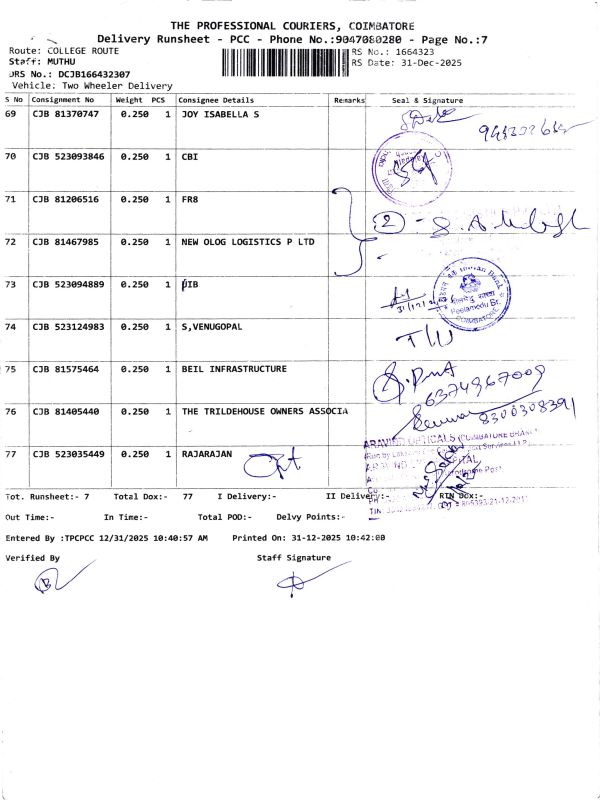 THE PROFESSIONAL COURIERS, COIMBATORE
Delivery Runsheet - PCC - Phone No.:9047080280 - Page No.:7
Route: COLLEGE ROUTE
RS No.: 1664323
Staff: MUTHU
RS Date: 31-Dec-2025
DRS No.: DCJB166432307
Vehicle: Two Wheeler Delivery
S No Consignment No Weight PCS Consignee Details Remarks Seal & Signature
69 CJB 81370747 0.250 1 JOY ISABELLA S
70 CJB 523093846 0.250 1 CBI
71 CJB 81206516 0.250 1 FR8
2
72 CJB 81467985 0.250 1 NEW OLOG LOGISTICS P LTD
73 CJB 523094889 0.250 1 UIB
Indian Bank
Peelamedu Br.
COIMBATORE
74 CJB 523124983 0.250 1 S,VENUGOPAL
75 CJB 81575464 0.250 1 BEIL INFRASTRUCTURE
6374967009
76 CJB 81405440 0.250 1 THE TRILDEHOUSE OWNERS ASSOCIA
8300308391
ARAVIND OPTICALS (COIMBATORE BRANCH)
77 CJB 523035449 0.250 1 RAJARAJAN
Tot. Runsheet:- 7 Total Dox:- 77 I Delivery:- II Delivery:- RTN Dox:-
Out Time:- In Time:- Total POD:- Delvy Points:-
Entered By :TPCPCC 12/31/2025 10:40:57 AM Printed On: 31-12-2025 10:42:00
Verified By Staff Signature